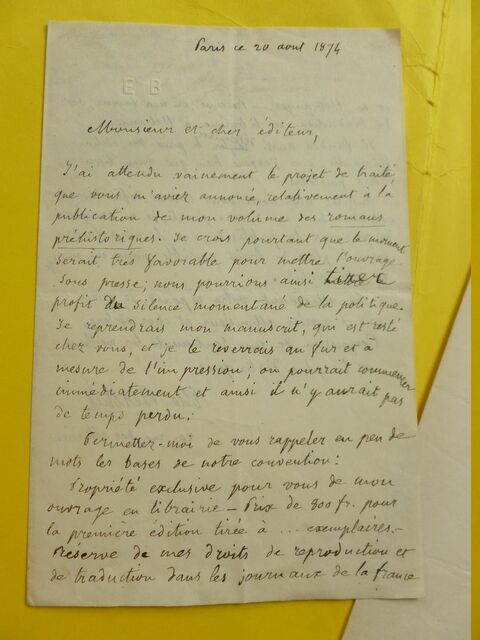 Paris ce 20 aout 1874
E B
Monsieur et cher éditeur,
J'ai attendu vainement le projet de traité,
que vous m'aviez annoncé, relativement à la
publication de mon volume des romans
préhistoriques. Je crois pourtant que le moment
serait très favorable pour mettre l'ouvrage
sous presse; nous pourrions ainsi tirer
profit du silence momentané de la politique.
Je reprendrais mon manuscrit, qui est resté
chez vous, et je le reverrais au fur et à
mesure de l'impression; on pourrait commencer
immédiatement et ainsi il n'y aurait pas
de temps perdu.
Permettez-moi de vous rappeler en peu de
mots les bases de notre convention:
Propriété exclusive pour vous de mon
ouvrage en librairie – Prix de 800 fr. pour
la première édition tirée à ... exemplaires. –
Réserve de mes droits de reproduction et
de traduction dans les journaux de la france